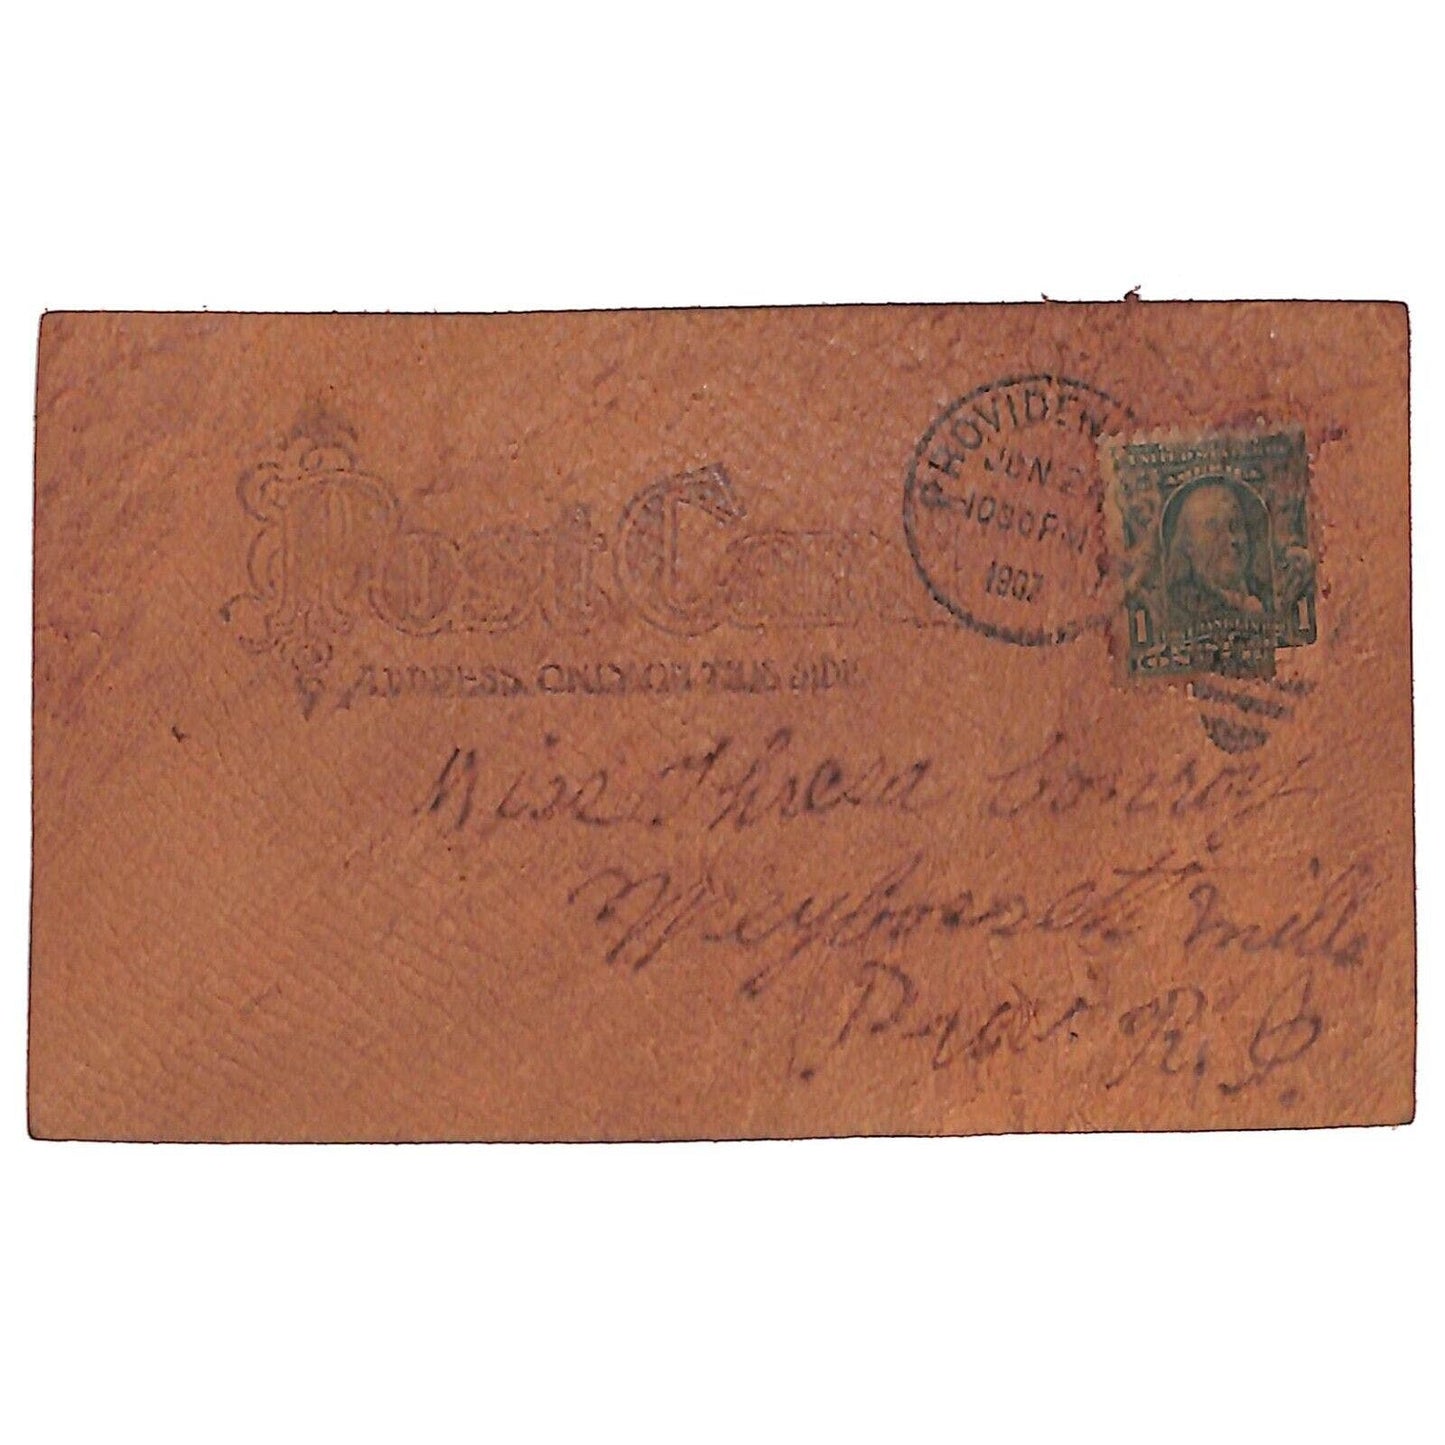 Post Card
ADDRESS ONLY ON THIS SIDE
PROVIDEN
JUN 2
1030 PM
1907
1 1
Miss Thresa Conroy
Weybosset Mills
Prov. R. I.